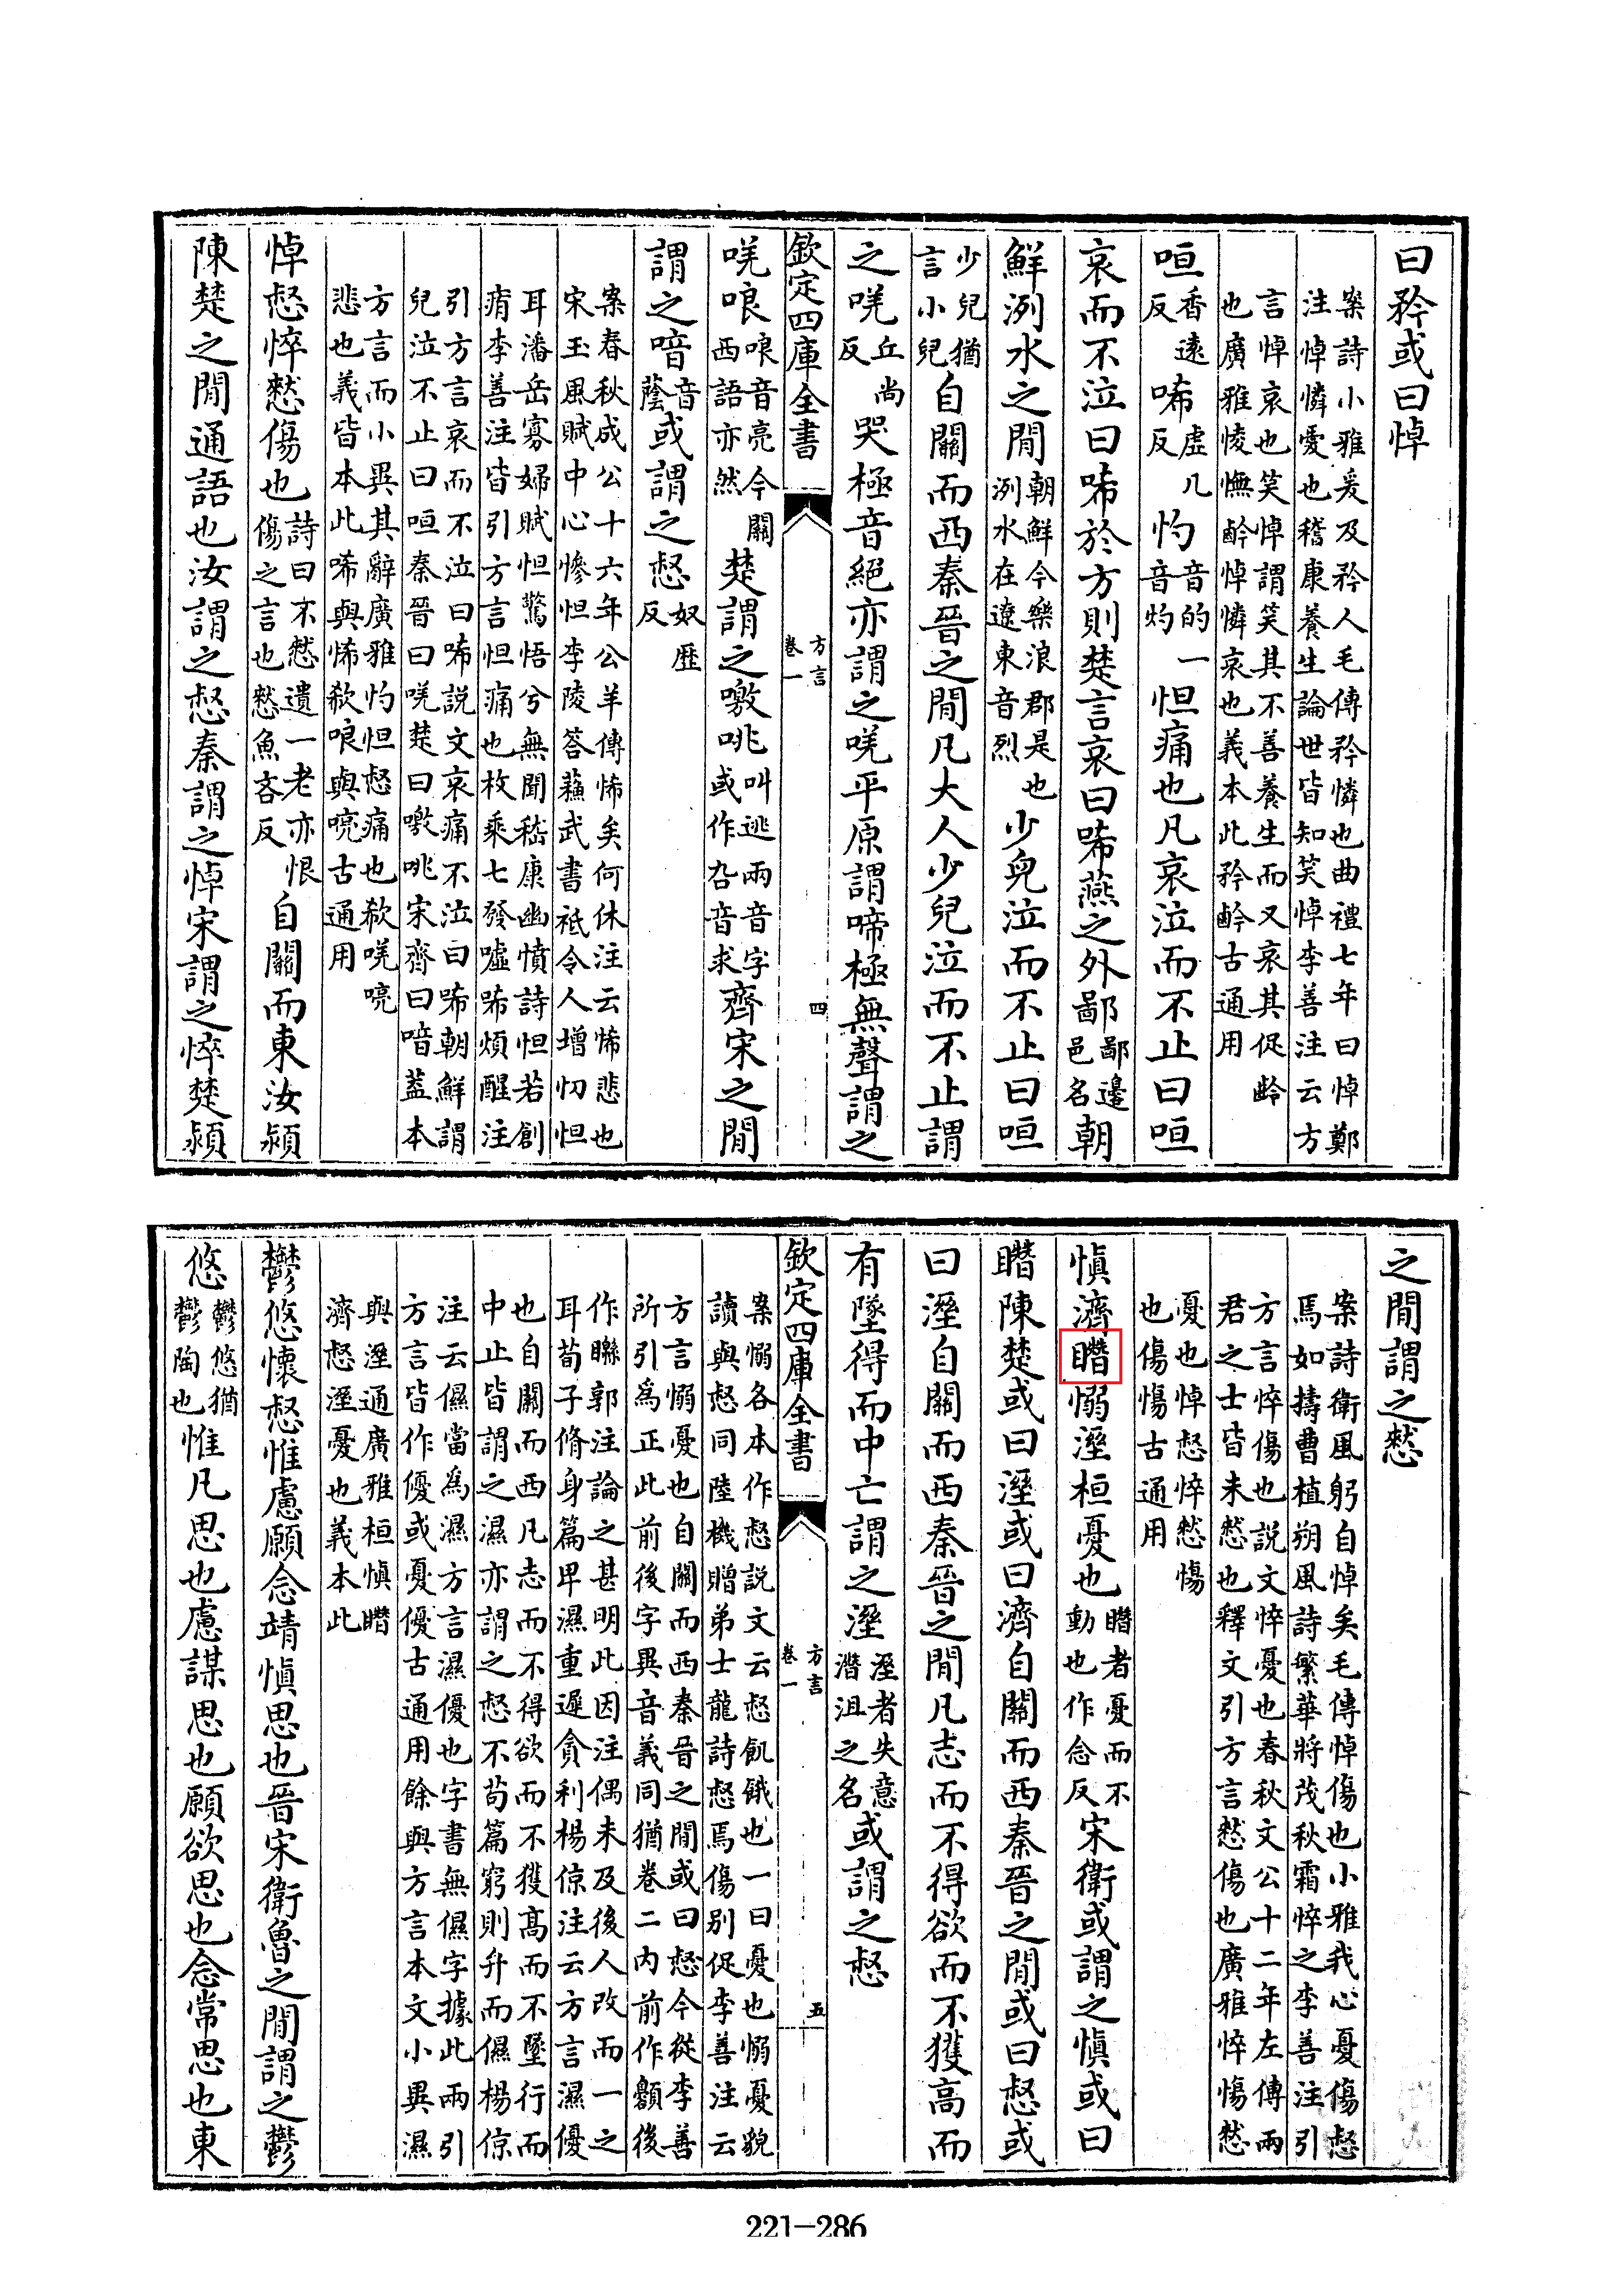 曰矜或曰悼
案詩小雅爰及矜人毛傳矜憐也曲禮七年曰悼鄭
注悼憐憂也稽康養生論世皆知笑悼李善注云方
言悼哀也笑悼謂笑其不善養生而又哀其促齡
也廣雅㥄憮齡悼憐哀也義本此矜齡古通用
咺香遠反唏虛几反灼音的一音灼怛痛也凡哀泣而不止曰咺
哀而不泣曰唏於方則楚言哀曰唏燕之外鄙鄙邊邑名朝
鮮洌水之閒朝鮮今樂浪郡是也洌水在遼東音烈少兒泣而不止曰咺
少兒猶言小兒自關而西秦晉之閒凡大人少兒泣而不止謂
之唴丘尚反哭極音絕亦謂之唴平原謂啼極無聲謂之
欽定四庫全書
方言
卷一
四
唴哴哴音亮今關西語亦然楚謂之噭咷叫逃兩音字或作㕦音求齊宋之閒
謂之喑音蔭或謂之惄奴歷反
案春秋成公十六年公羊傳悕矣何休注云悕悲也
宋玉風賦中心慘怛李陵答蘇武書祗令人增忉怛
耳潘岳寡婦賦怛驚悟兮無聞嵇康幽憤詩怛若創
痏李善注皆引方言怛痛也枚乘七發噓唏煩酲注
引方言哀而不泣曰唏説文哀痛不泣曰唏朝鮮謂
兒泣不止曰咺秦晉曰唴楚曰噭咷宋齊曰喑葢本
方言而小異其辭廣雅灼怛惄痛也欷唴喨
悲也義皆本此唏與悕欷哴與喨古通用
悼惄悴憖傷也詩曰不憖遺一老亦恨傷之言也憖魚吝反自關而東汝潁
陳楚之閒通語也汝謂之惄秦謂之悼宋謂之悴楚潁
之閒謂之憖
案詩衛風躬自悼矣毛傳悼傷也小雅我心憂傷惄
焉如擣曹植朔風詩繁華將茂秋霜悴之李善注引
方言悴傷也説文悴憂也春秋文公十二年左傳兩
君之士皆未憖也釋文引方言憖傷也廣雅悴愓憖
憂也悼惄悴憖愓
也傷愓古通用
慎濟䁮愵溼桓憂也䁮者憂而不動也作念反宋衛或謂之慎或曰
䁮陳楚或曰溼或曰濟自關而西秦晉之閒或曰惄或
曰溼自關而西秦晉之閒凡志而不得欲而不獲高而
有墜得而中亡謂之溼溼者失意潛沮之名或謂之惄
欽定四庫全書
方言
卷一
五
案愵各本作惄説文云惄飢餓也一曰憂也愵憂貌
讀與惄同陸機贈弟士龍詩惄焉傷别促李善注云
方言愵憂也自關而西秦晉之閒或曰惄今從李善
所引為正此前後字異音義同猶卷二内前作𩔉後
作𥉸郭注論之甚明此因注偶未及後人改而一之
耳荀子脩身篇卑濕重遲貪利楊倞注云方言濕優
也自關而西凡志而不得欲而不獲髙而不墜行而
中止皆謂之濕亦謂之惄不茍篇窮則弃而儑楊倞
注云儑當為濕方言濕優也字書無儑字據此兩引
方言皆作優或憂優古通用餘與方言本文小異濕
與溼通廣雅桓慎䁮
濟惄溼憂也義本此
鬱悠懷惄惟慮願念靖慎思也晉宋衛魯之閒謂之鬱
悠鬱悠猶鬱陶也惟凡思也慮謀思也願欲思也念常思也東
221-286